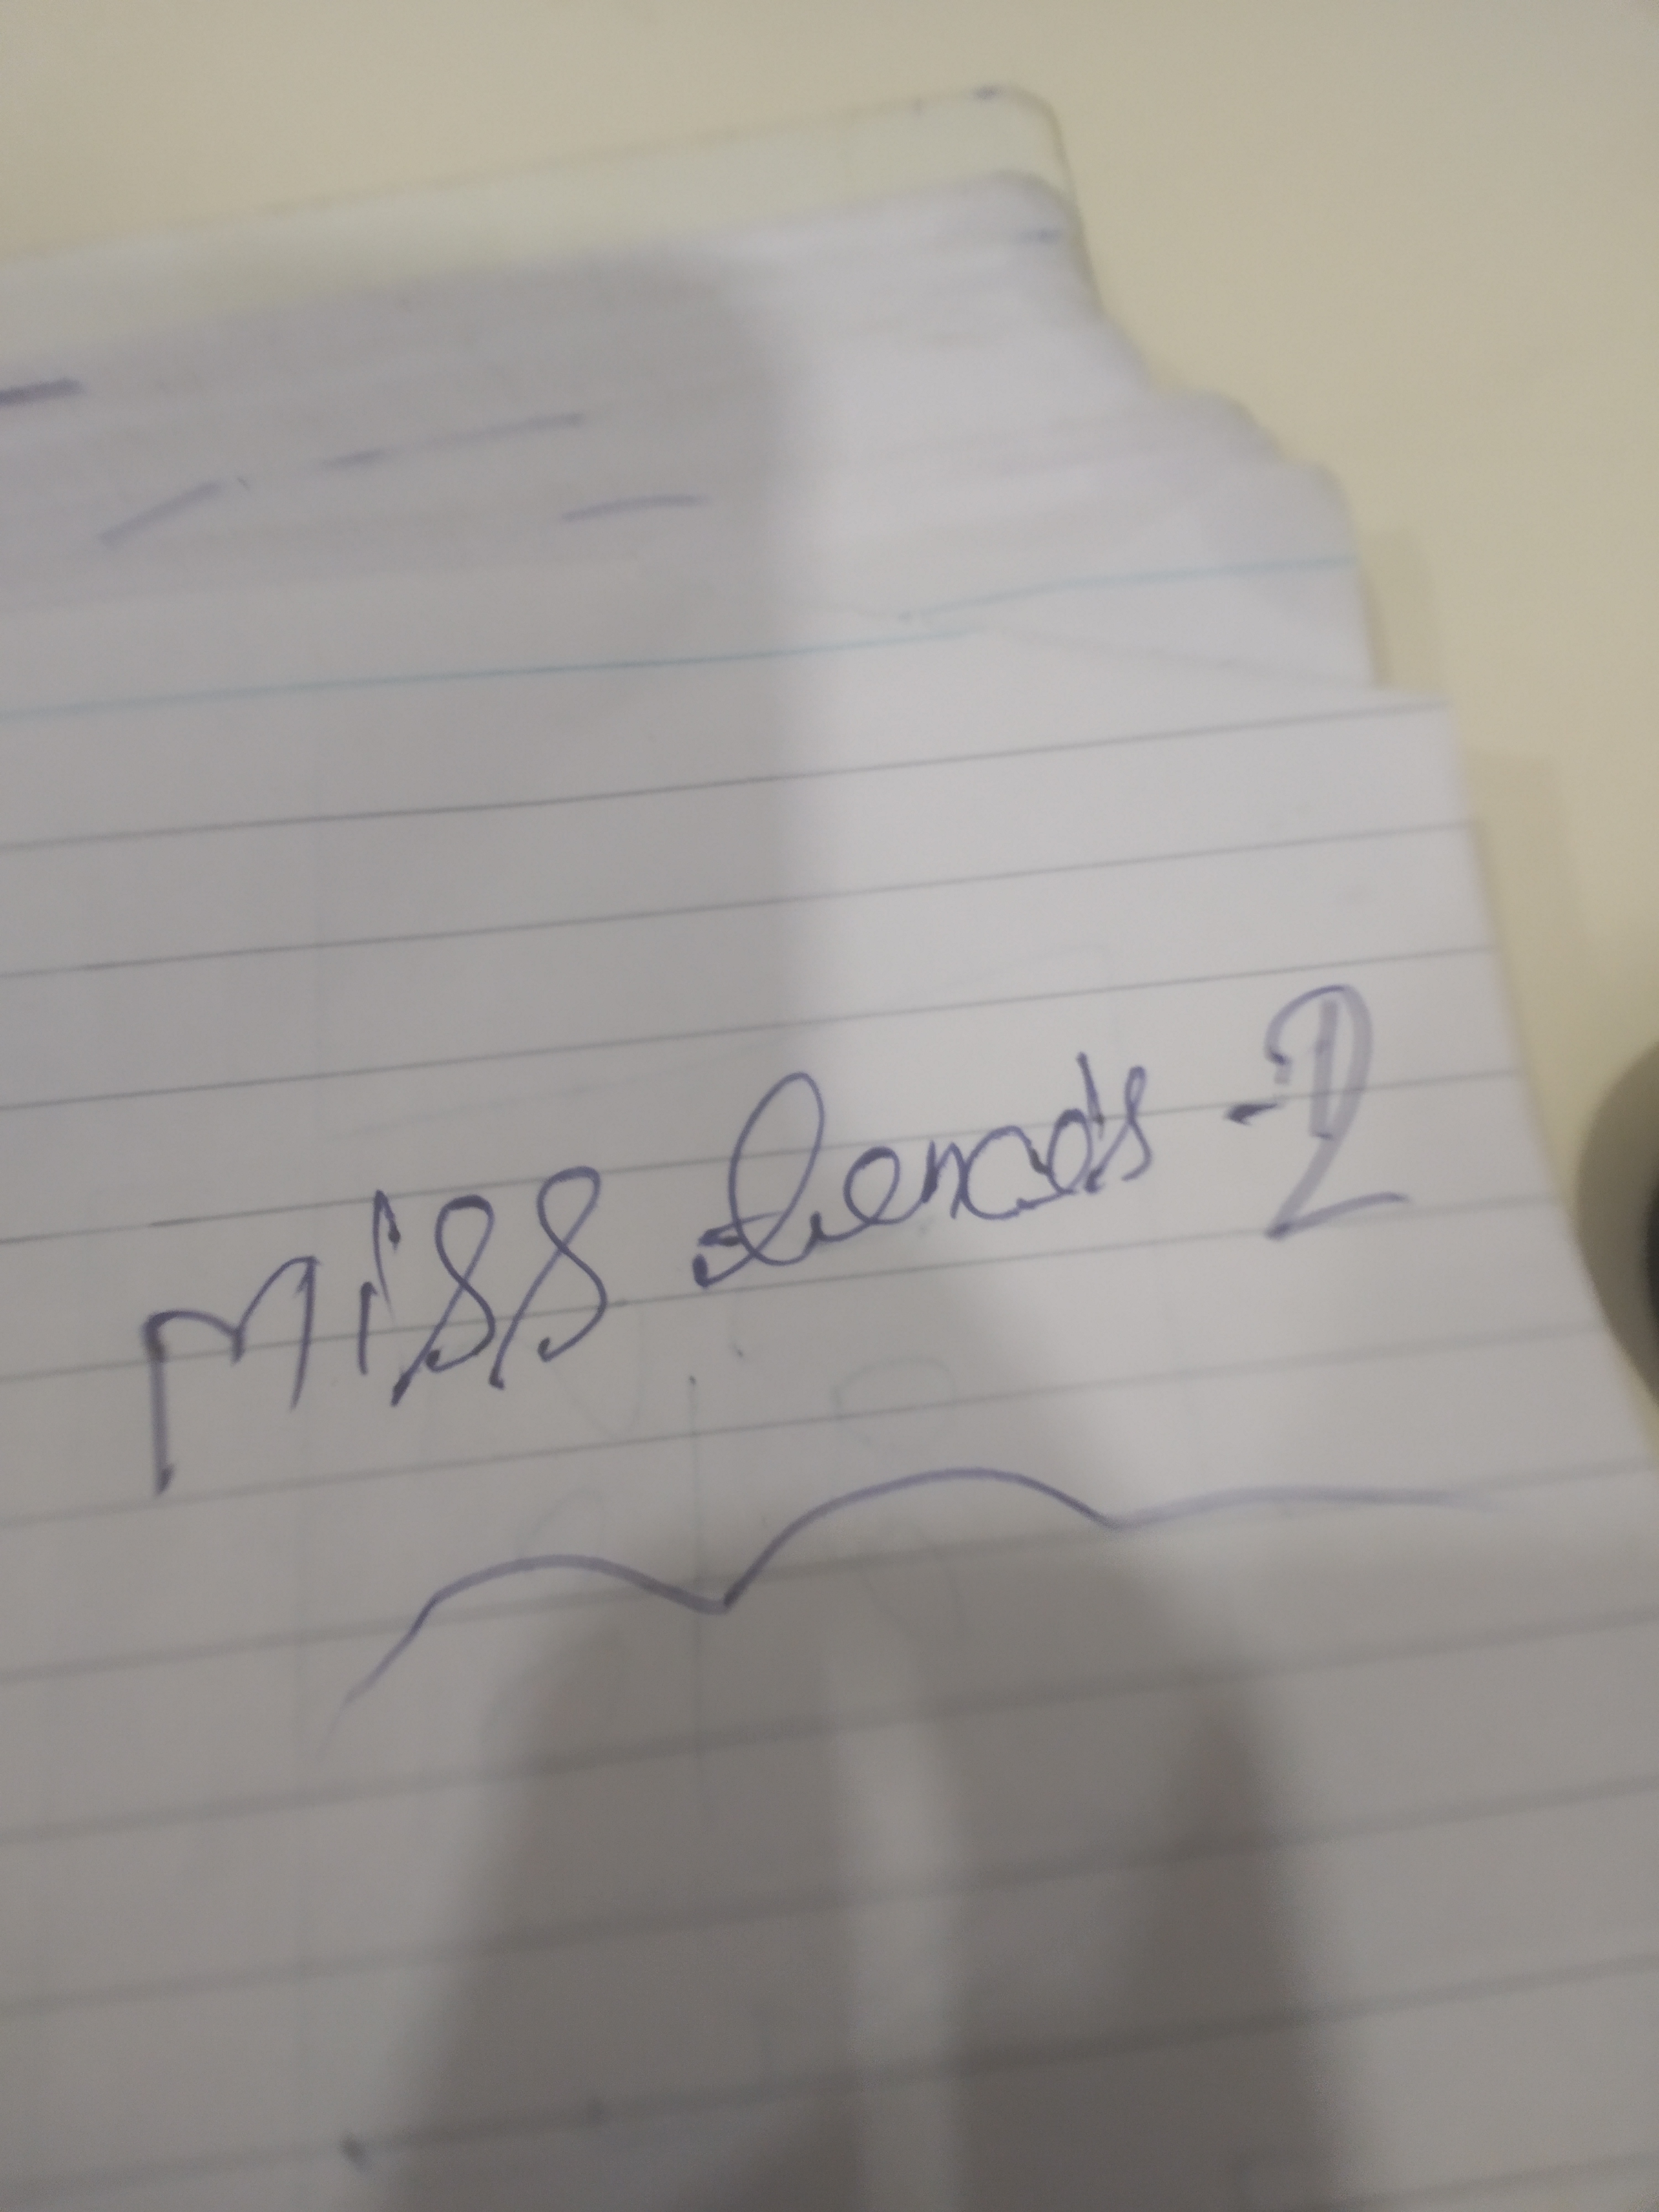 Miss Lenads -2